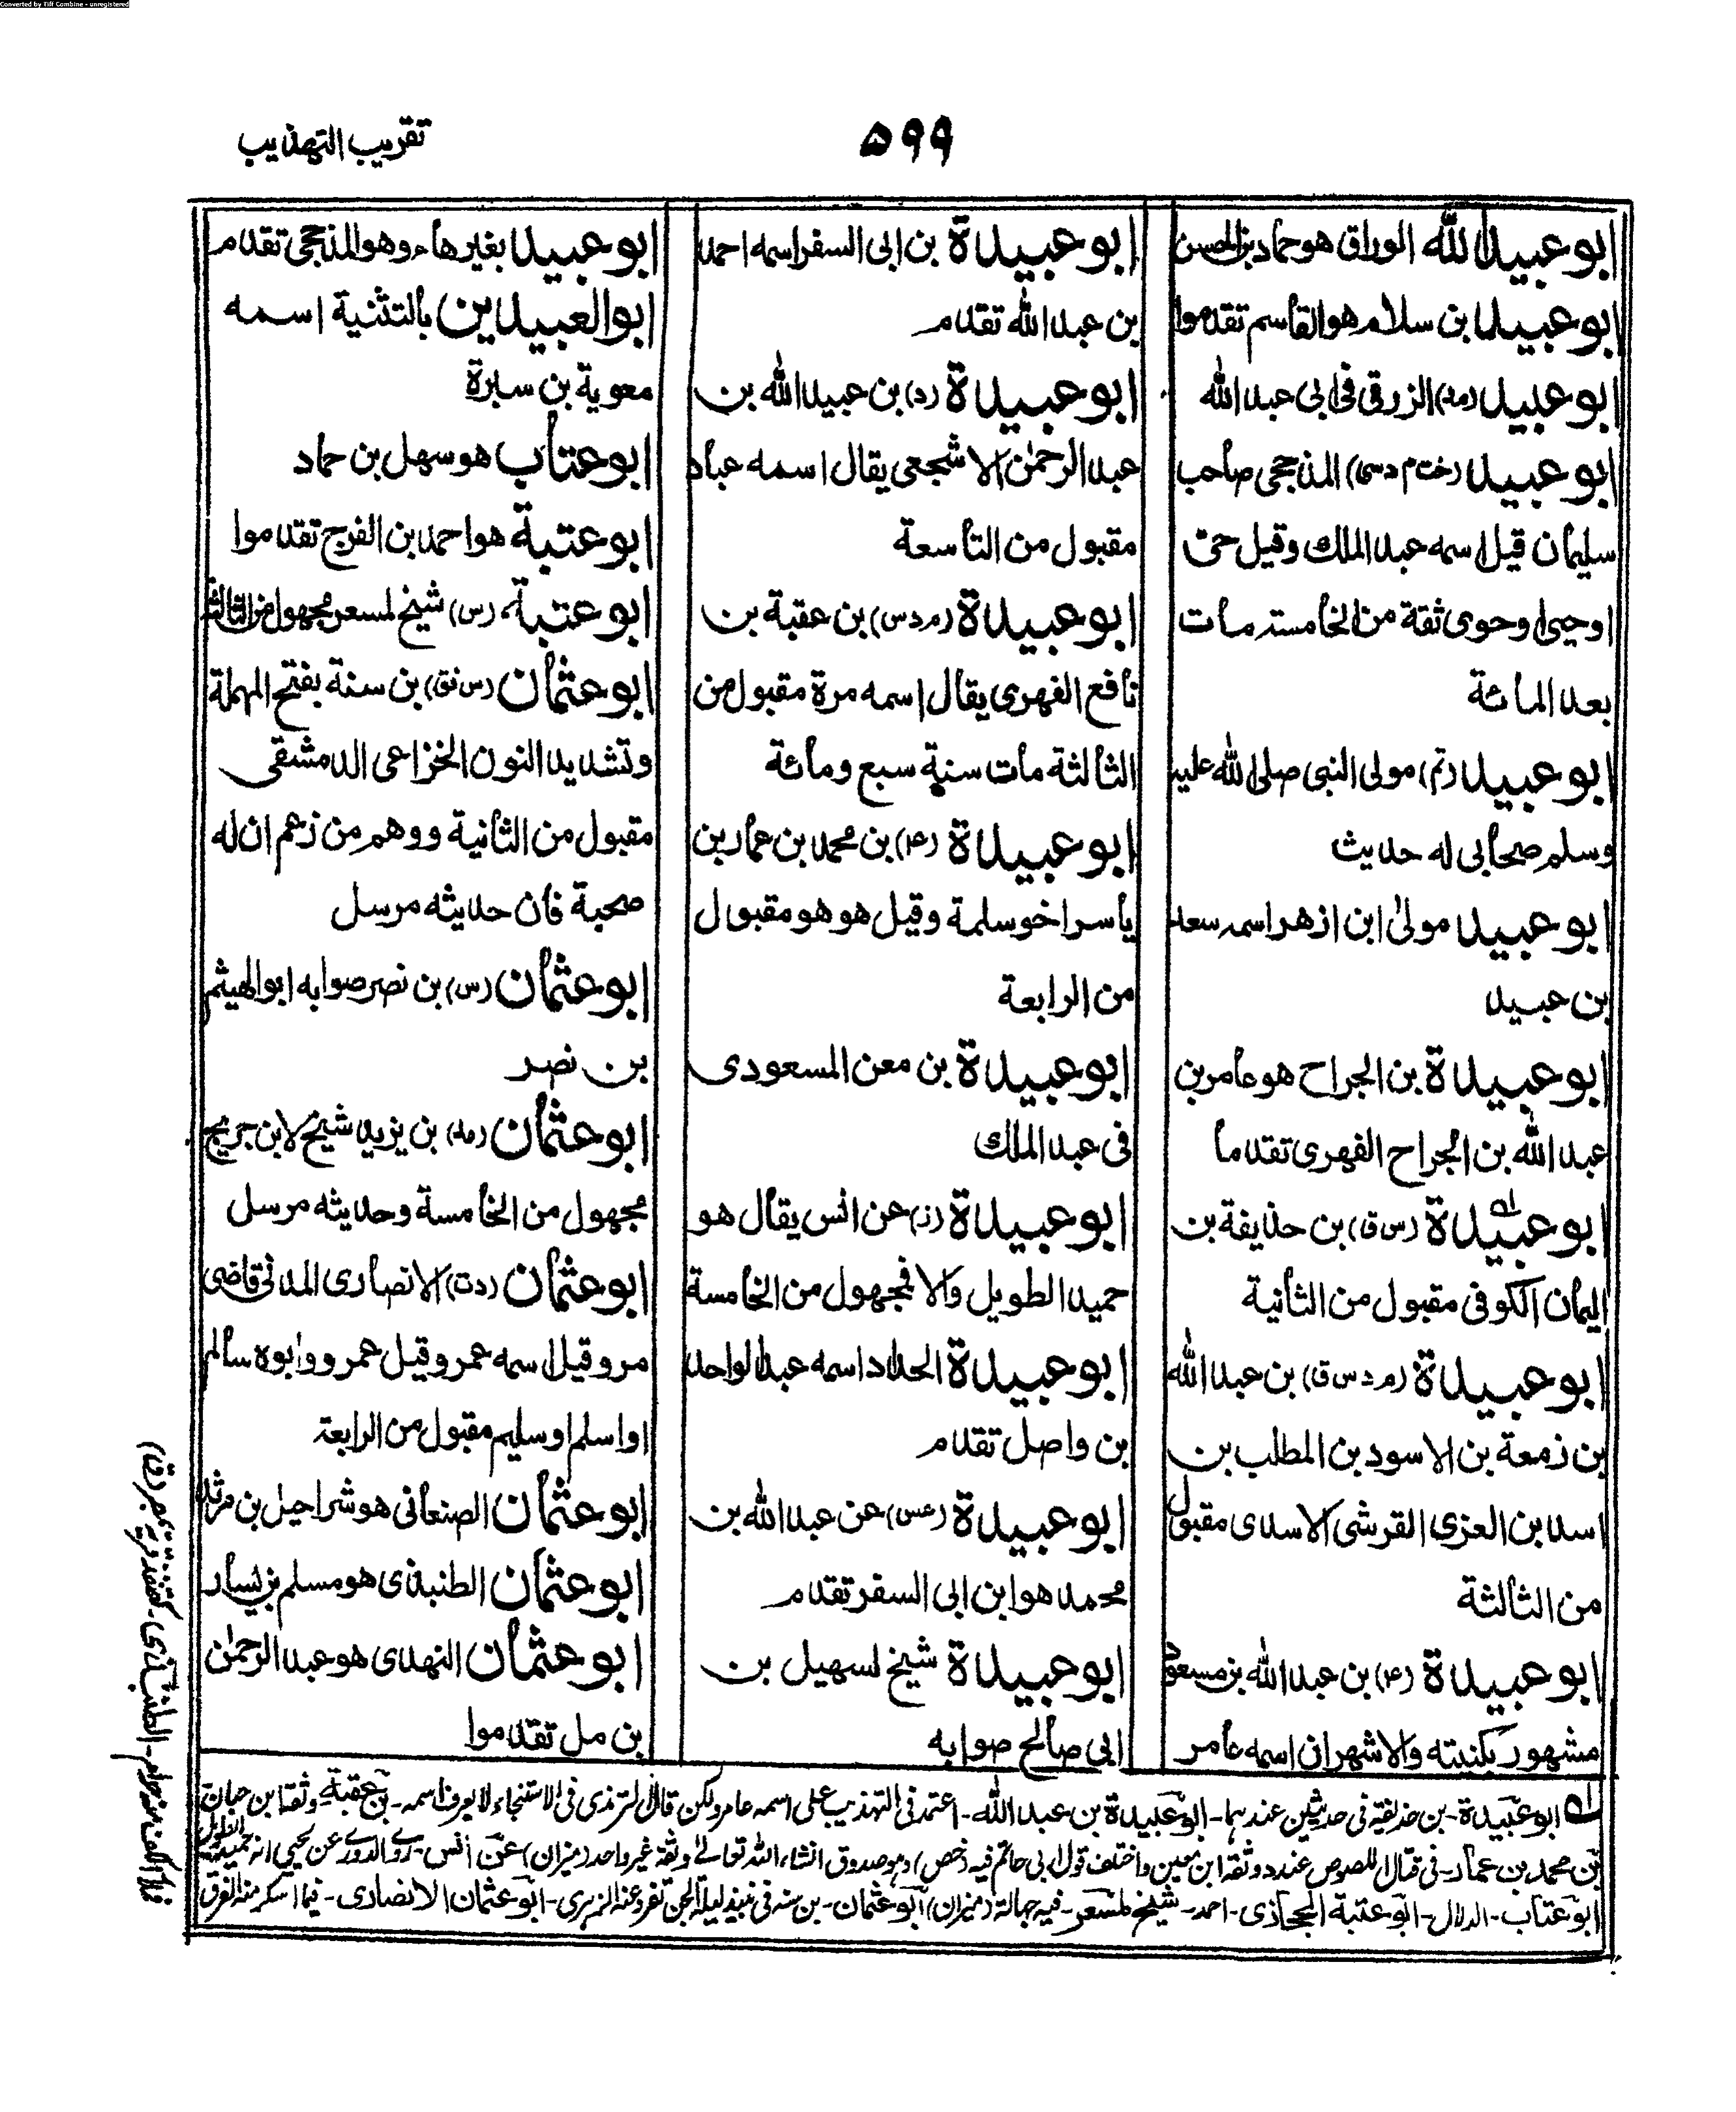 Converted by Tiff Combine - unregistered
تقريب التهذيب
۵۹۹
ابو عبيد الله الوراق هو حماد بن الحسن
ابو عبيد بن سلام هو القاسم تقدموا
ابو عبيد (مد) الزرقى فى ابى عبد الله
ابو عبيد (خت م د سى) المذحجى صاحب
سليمان قيل اسمه عبد الملك وقيل حى
او حيى او حوى ثقة من الخامسة مات
بعد المائة
ابو عبيد (تم) مولى النبى صلى الله عليه
وسلم صحابى له حديث
ابو عبيد مولى ابن ازهر اسمه سعد
بن عبيد
ابو عبيدة بن الجراح هو عامر بن
عبد الله بن الجراح الفهرى تقدما
ابو عبيدة (س ق) بن حذيفة بن
اليمان الكوفى مقبول من الثانية
ابو عبيدة (م د س ق) بن عبد الله
بن زمعة بن الاسود بن المطلب بن
اسد بن العزى القرشى الاسدى مقبول
من الثالثة
ابو عبيدة (ع) بن عبد الله بن مسعود
مشهور بكنيته والاشهر ان اسمه عامر
ابو عبيدة بن ابى السفر اسمه احمد
بن عبد الله تقدم
ابو عبيدة (د) بن عبيد الله بن
عبد الرحمن الاشجعى يقال اسمه عباد
مقبول من التاسعة
ابو عبيدة (م د س) بن عقبة بن
نافع الفهرى يقال اسمه مرة مقبول من
الثالثة مات سنة سبع ومائة
ابو عبيدة (ع) بن محمد بن عمار بن
ياسر اخو سلمة وقيل هو هو مقبول
من الرابعة
ابو عبيدة بن معن المسعودى
فى عبد الملك
ابو عبيدة (ز) عن انس يقال هو
حميد الطويل والا فمجهول من الخامسة
ابو عبيدة الحداد اسمه عبد الواحد
بن واصل تقدم
ابو عبيدة (عس) عن عبد الله بن
محمد هو ابن ابى السفر تقدم
ابو عبيدة شيخ لسهيل بن
ابى صالح صوابه
ابو عبيد بغير هاء وهو المذحجى تقدم
ابو العبيدين بالتثنية اسمه
معوية بن سبرة
ابو عتاب هو سهل بن حماد
ابو عتبة هو احمد بن الفرج تقدموا
ابو عتبة (س) شيخ لمسعر مجهول من الثالثة
ابو عثمان (س نق) بن سنة بفتح المهملة
وتشديد النون الخزاعى الدمشقى
مقبول من الثانية ووهم من زعم ان له
صحبة فان حديثه مرسل
ابو عثمان (س) بن نصر صوابه ابو الهيثم
بن نصر
ابو عثمان (مد) بن يزيد شيخ لابن جريج
مجهول من الخامسة وحديثه مرسل
ابو عثمان (دت) الانصارى المدنى قاضى
مرو قيل اسمه عمر وقيل عمرو وابوه سالم
او اسلم او سليم مقبول من الرابعة
ابو عثمان الصنعانى هو شراحيل بن مرثد
ابو عثمان الطنبذى هو مسلم بن يسار
ابو عثمان النهدى هو عبد الرحمن
بن مل تقدموا
له ابو عبيدة - بن حذيفة فى حديثين عندهما - ابو عبيدة بن عبد الله - اعتمد فى التهذيب على اسمه عامر ولكن قال الترمذى فى الاستنجاء لا يعرف اسمه - بن عقبة وثقه ابن حبان
بن محمد بن عمار - فى قتال اللصوص عنده وثقه ابن معين واختلف قول ابى حاتم فيه (خص) وهو صدوق انشاء الله تعالى وثقه غير واحد (ميزان) عن انس - روى الدورى عن يحيى انه حميد الطويل
ابو عتاب - الدلال - ابو عتبة الحجازى - احمد - شيخ لمسعر - فيه جهالة (ميزان) ابو عثمان - بن سنه فى نبيذ ليلة الجن تفرد عنه الزهرى - ابو عثمان الانصارى - فيما اسكر منه الفرق
فملأ الكف منه حرام - الطنبذى -